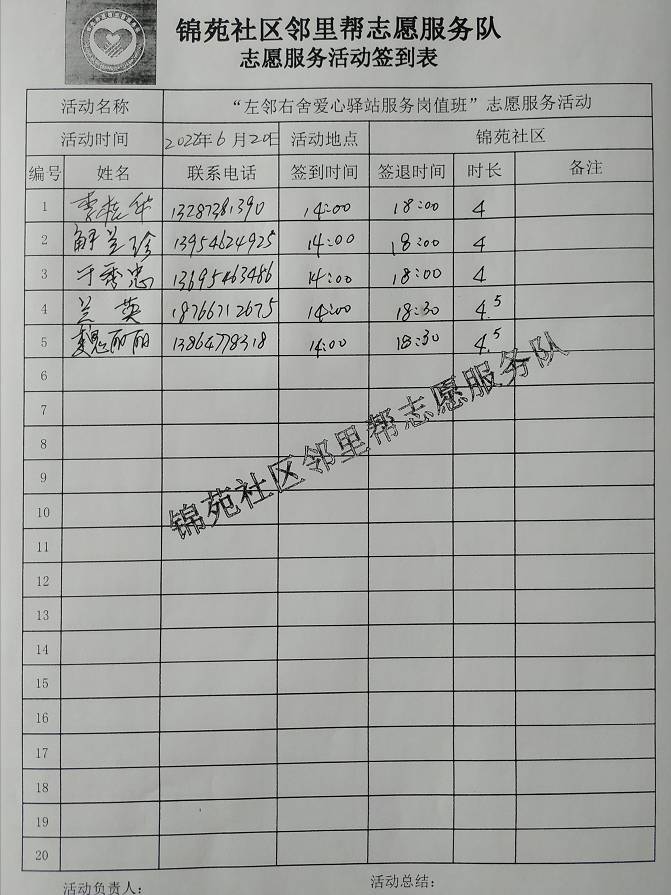 锦苑社区邻里帮志愿服务队
志愿服务活动签到表
活动名称 “左邻右舍爱心驿站服务岗值班”志愿服务活动
活动时间 2022年6月20日 活动地点 锦苑社区
编号 姓名 联系电话 签到时间 签退时间 时长 备注
1 李桂华 13287381390 14:00 18:00 4
2 解兰珍 13954624925 14:00 18:00 4
3 于秀忠 13695463486 14:00 18:00 4
4 兰英 18766712675 14:00 18:30 4.5
5 魏丽丽 13864778318 14:00 18:30 4.5
6
7
8
9
10
11
12
13
14
15
16
17
18
19
20
锦苑社区邻里帮志愿服务队
活动负责人: 活动总结: